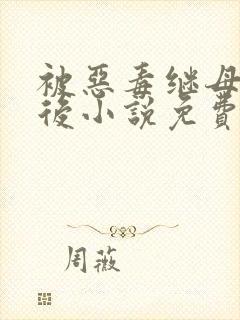 被惡毒继母
後小說免費
周薇